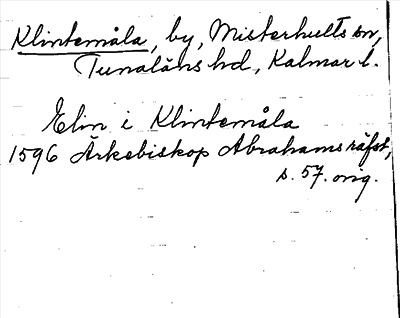 Klintemåla, by, Misterhults sn,
Tunaläns hd, Kalmar l.
Elin i Klintemåla
1596 Ärkebiskop Abrahams räfst,
s. 57. orig.